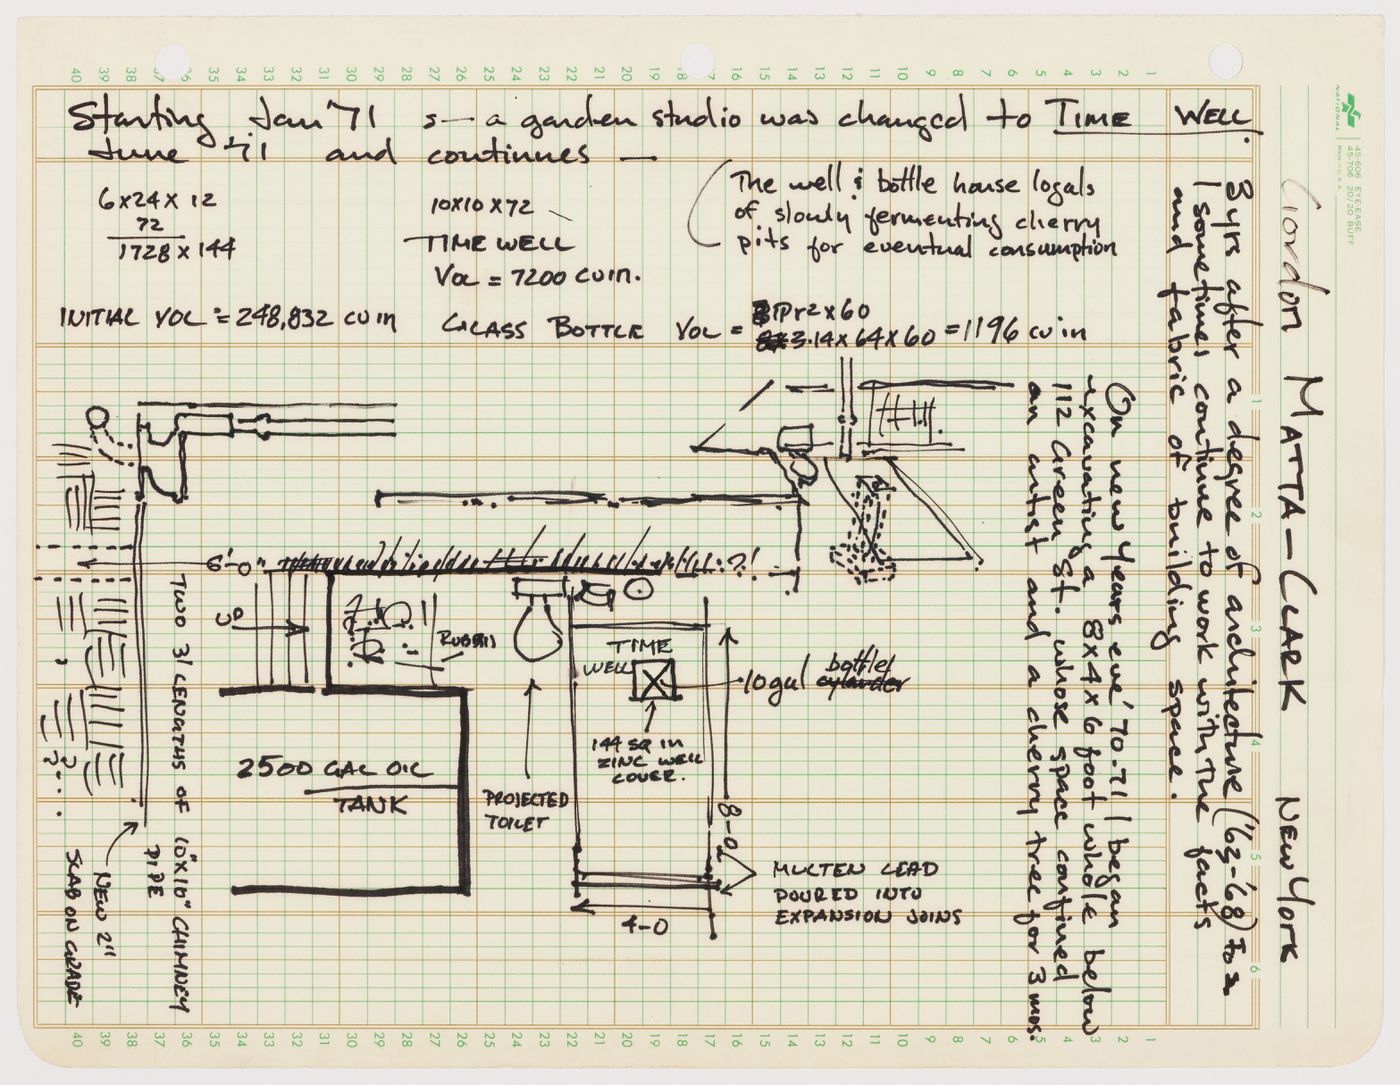 Starting Jan '71 s— a garden studio was changed to TIME WELL.
June '71 and continues —
6x24x12
72
1728 x 144
INITIAL VOL = 248,832 cu in
10x10x72
TIME WELL
VOL = 7200 cu in.
(The well & bottle house logals
of slowly fermenting cherry
pits for eventual consumption
GLASS BOTTLE VOL = Pr2 x 60
3.14 x 64 x 60 = 1196 cu in
Gordon MATTA-CLARK NEW YORK
3 yrs after a degree of architecture ('63-'68) to
I sometimes continue to work with the facts
and fabric of building space.
On new years eve' 70.71 I began
excavating a 8x4x6 foot whole below
112 Green St. whose space confined
an artist and a cherry tree for 3 mos.
6'-0"
UP
RUBBIS
TIME
WELL
10 gal bottle
cylander
144 SQ IN
ZINC WELL
COVER.
2500 GAL OIL
TANK
PROJECTED
TOILET
8-0
4-0
MULTEN LEAD
POURED INTO
EXPANSION JOINS
TWO 3' LENGTHS OF 10"X10" CHIMNEY
PIPE
NEW 2"
SLAB ON GRADE
NATIONAL
Made in U.S.A.
45-606 EYE-EASE
45-706 20/20 BUFF
40 39 38 37 36 35 34 33 32 31 30 29 28 27 26 25 24 23 22 21 20 19 18 17 16 15 14 13 12 11 10 9 8 7 6 5 4 3 2 1
1
2
3
4
5
6
40 39 38 37 36 35 34 33 32 31 30 29 28 27 26 25 24 23 22 21 20 19 18 17 16 15 14 13 12 11 10 9 8 7 6 5 4 3 2 1